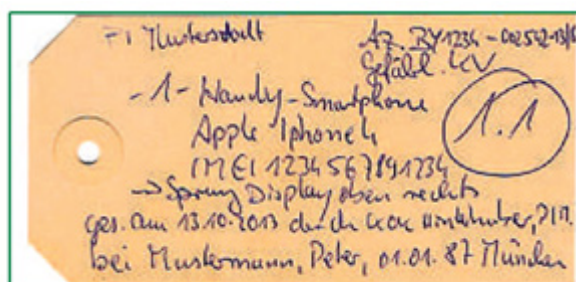 PI Musterstadt
Az. BY1234-002542-13/
Gefährl. KV
-1- Handy-Smartphone
1.1
Apple Iphone 4
IMEI 1234567891234
→ Sprung Display oben rechts
ges. am 13.10.2013 durch KOK Hinkhuber, PI M.
bei Mustermann, Peter, 01.01.87 München